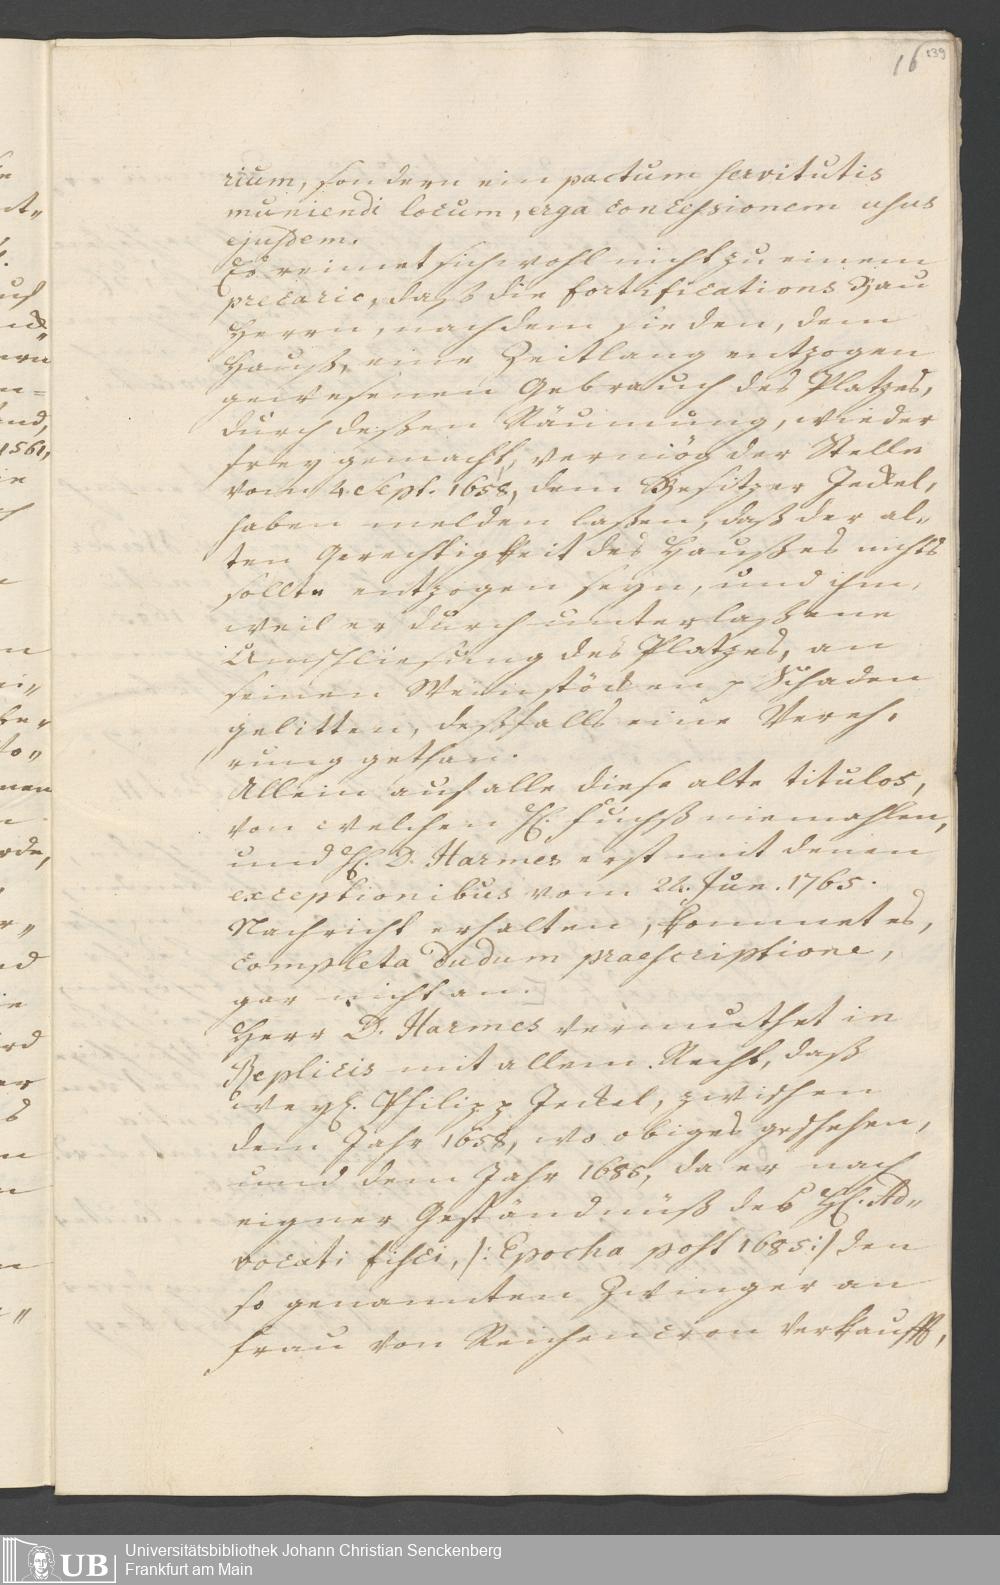 16 139
rium, sondern ein pactum servitutis
muniendi locum, erga concessionem usus
ejusdem.
Es reimet sich wohl nicht zu einem
precario, daß die fortifications Bau
Herrn, nachdem sie den, dem
Hauß, eine Zeitlang entzogen
gewesenen Gebrauch des Platzes,
durch deßen Räumung, wieder
frey gemacht, vermög der Stelle
vom 4. Sept. 1658, dem Besitzer Jeckel,
haben melden laßen, daß der al„
ten Gerechtigkeit des Haußes nichts
sollte entzogen seyn, und ihm,
weil er durch unterlaßene
Umschliesung des Platzes, an
seinen Weinstöcken Schaden
gelitten, deßfalls eine Vereh„
rung gethan.
Allein auf alle diese alte titulos,
von welchen H. Fuchß niemahlen,
und H. D. Harmes erst mit denen
exceptionibus vom 22. Jun. 1765.
Nachricht erhalten, kommet es,
completa dudum praescriptione,
gar nicht an.
Herr D. Harmes vermuthet in
Replicis mit allem Recht, daß
weyl. Philipp Jeckel, zwischen
dem Jahr 1658, wo obiges geschehen,
und dem Jahr 1685, da er nach
eigner Geständnüß des H. Ad„
vocati fisci, /: Epocha post 1685 :/ den
so genannten Zwinger an
Frau von Reichencron verkaufft,
1561,
Universitätsbibliothek Johann Christian Senckenberg
Frankfurt am Main
UB